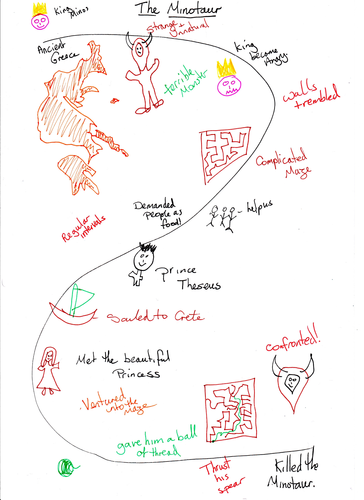 The Minotaur
King
Minos
Strange +
Unnatural
Ancient
Greece
King
became
Angry
terrible Monster
walls
trembled
Complicated
Maze
Demanded
people as
food!
helpus
Regular
intervals
Prince
Theseus
Sailed to Crete
Met the beautiful
Princess
confronted!
Ventured
into the
maze
gave him a ball
of thread
Thrust
his
spear
Killed the
Minotaur.